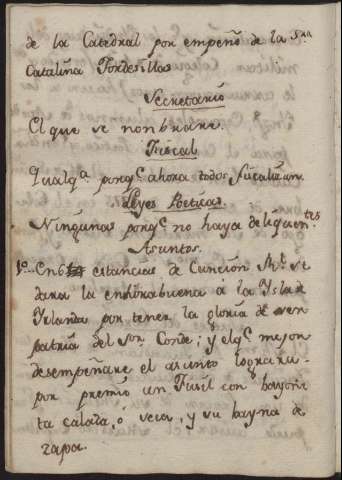 de la Catedral por empeño de la Sra.
Catalina Tordesillas
Secretario
El que se nonbrare.
Fiscal
Qualqa. porqe. ahora todos fiscalizan.
Leyes Poeticas.
Ningunas porqe. no haya delinquentes
Asuntos.
1º En 6 estancias de Cancion Rl. se
dara la enhorabuena a la Isla de
Irlanda por tener la gloria de ser
patria del Sor. Conde; y el qe. mejor
desempeñare el asunto lograra
por premio un Fusil con bayone
ta calada, o seca, y su bayna de
zapa.